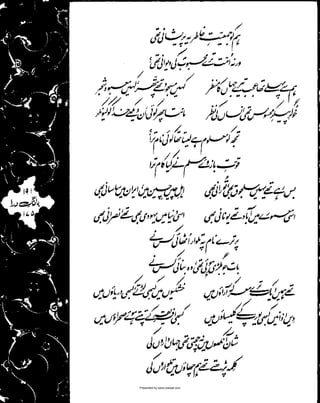 ہم کو جمعیتِ خاطر یہ پریشانی تھی
ورنہ اُمت ترے محبوبؐ کی دیوانی تھی؟
ہم سے پہلے تھا عجب تیرے جہاں کا منظر کہیں مسجود تھے پتھر، کہیں معبود شجر
خوگرِ پیکرِ محسوس تھی انساں کی نظر مانتا پھر کوئی اَن دیکھے خدا کو کیونکر
تجھ کو معلوم ہے لیتا تھا کوئی نام ترا؟
قوتِ بازوئے مسلم نے کیا کام ترا!
بس رہے تھے یہیں سلجوق بھی، تورانی بھی اہلِ چیں چین میں، ایران میں ساسانی بھی
اسی معمورے میں آباد تھے یونانی بھی اسی دنیا میں یہودی بھی تھے، نصرانی بھی
پر ترے نام پہ تلوار اٹھائی کس نے
بات جو بگڑی ہوئی تھی، وہ بنائی کس نے
تھے ہمیں ایک ترے معرکہ آراؤں میں خشکیوں میں کبھی لڑتے، کبھی دریاؤں میں
دیں اذانیں کبھی یورپ کے کلیساؤں میں کبھی افریقہ کے تپتے ہوئے صحراؤں میں
شان آنکھوں میں نہ جچتی تھی جہاں داروں کی
کلمہ پڑھتے تھے ہم چھاؤں میں تلواروں کی
بانگِ درا
Presented by www.ziaraat.com